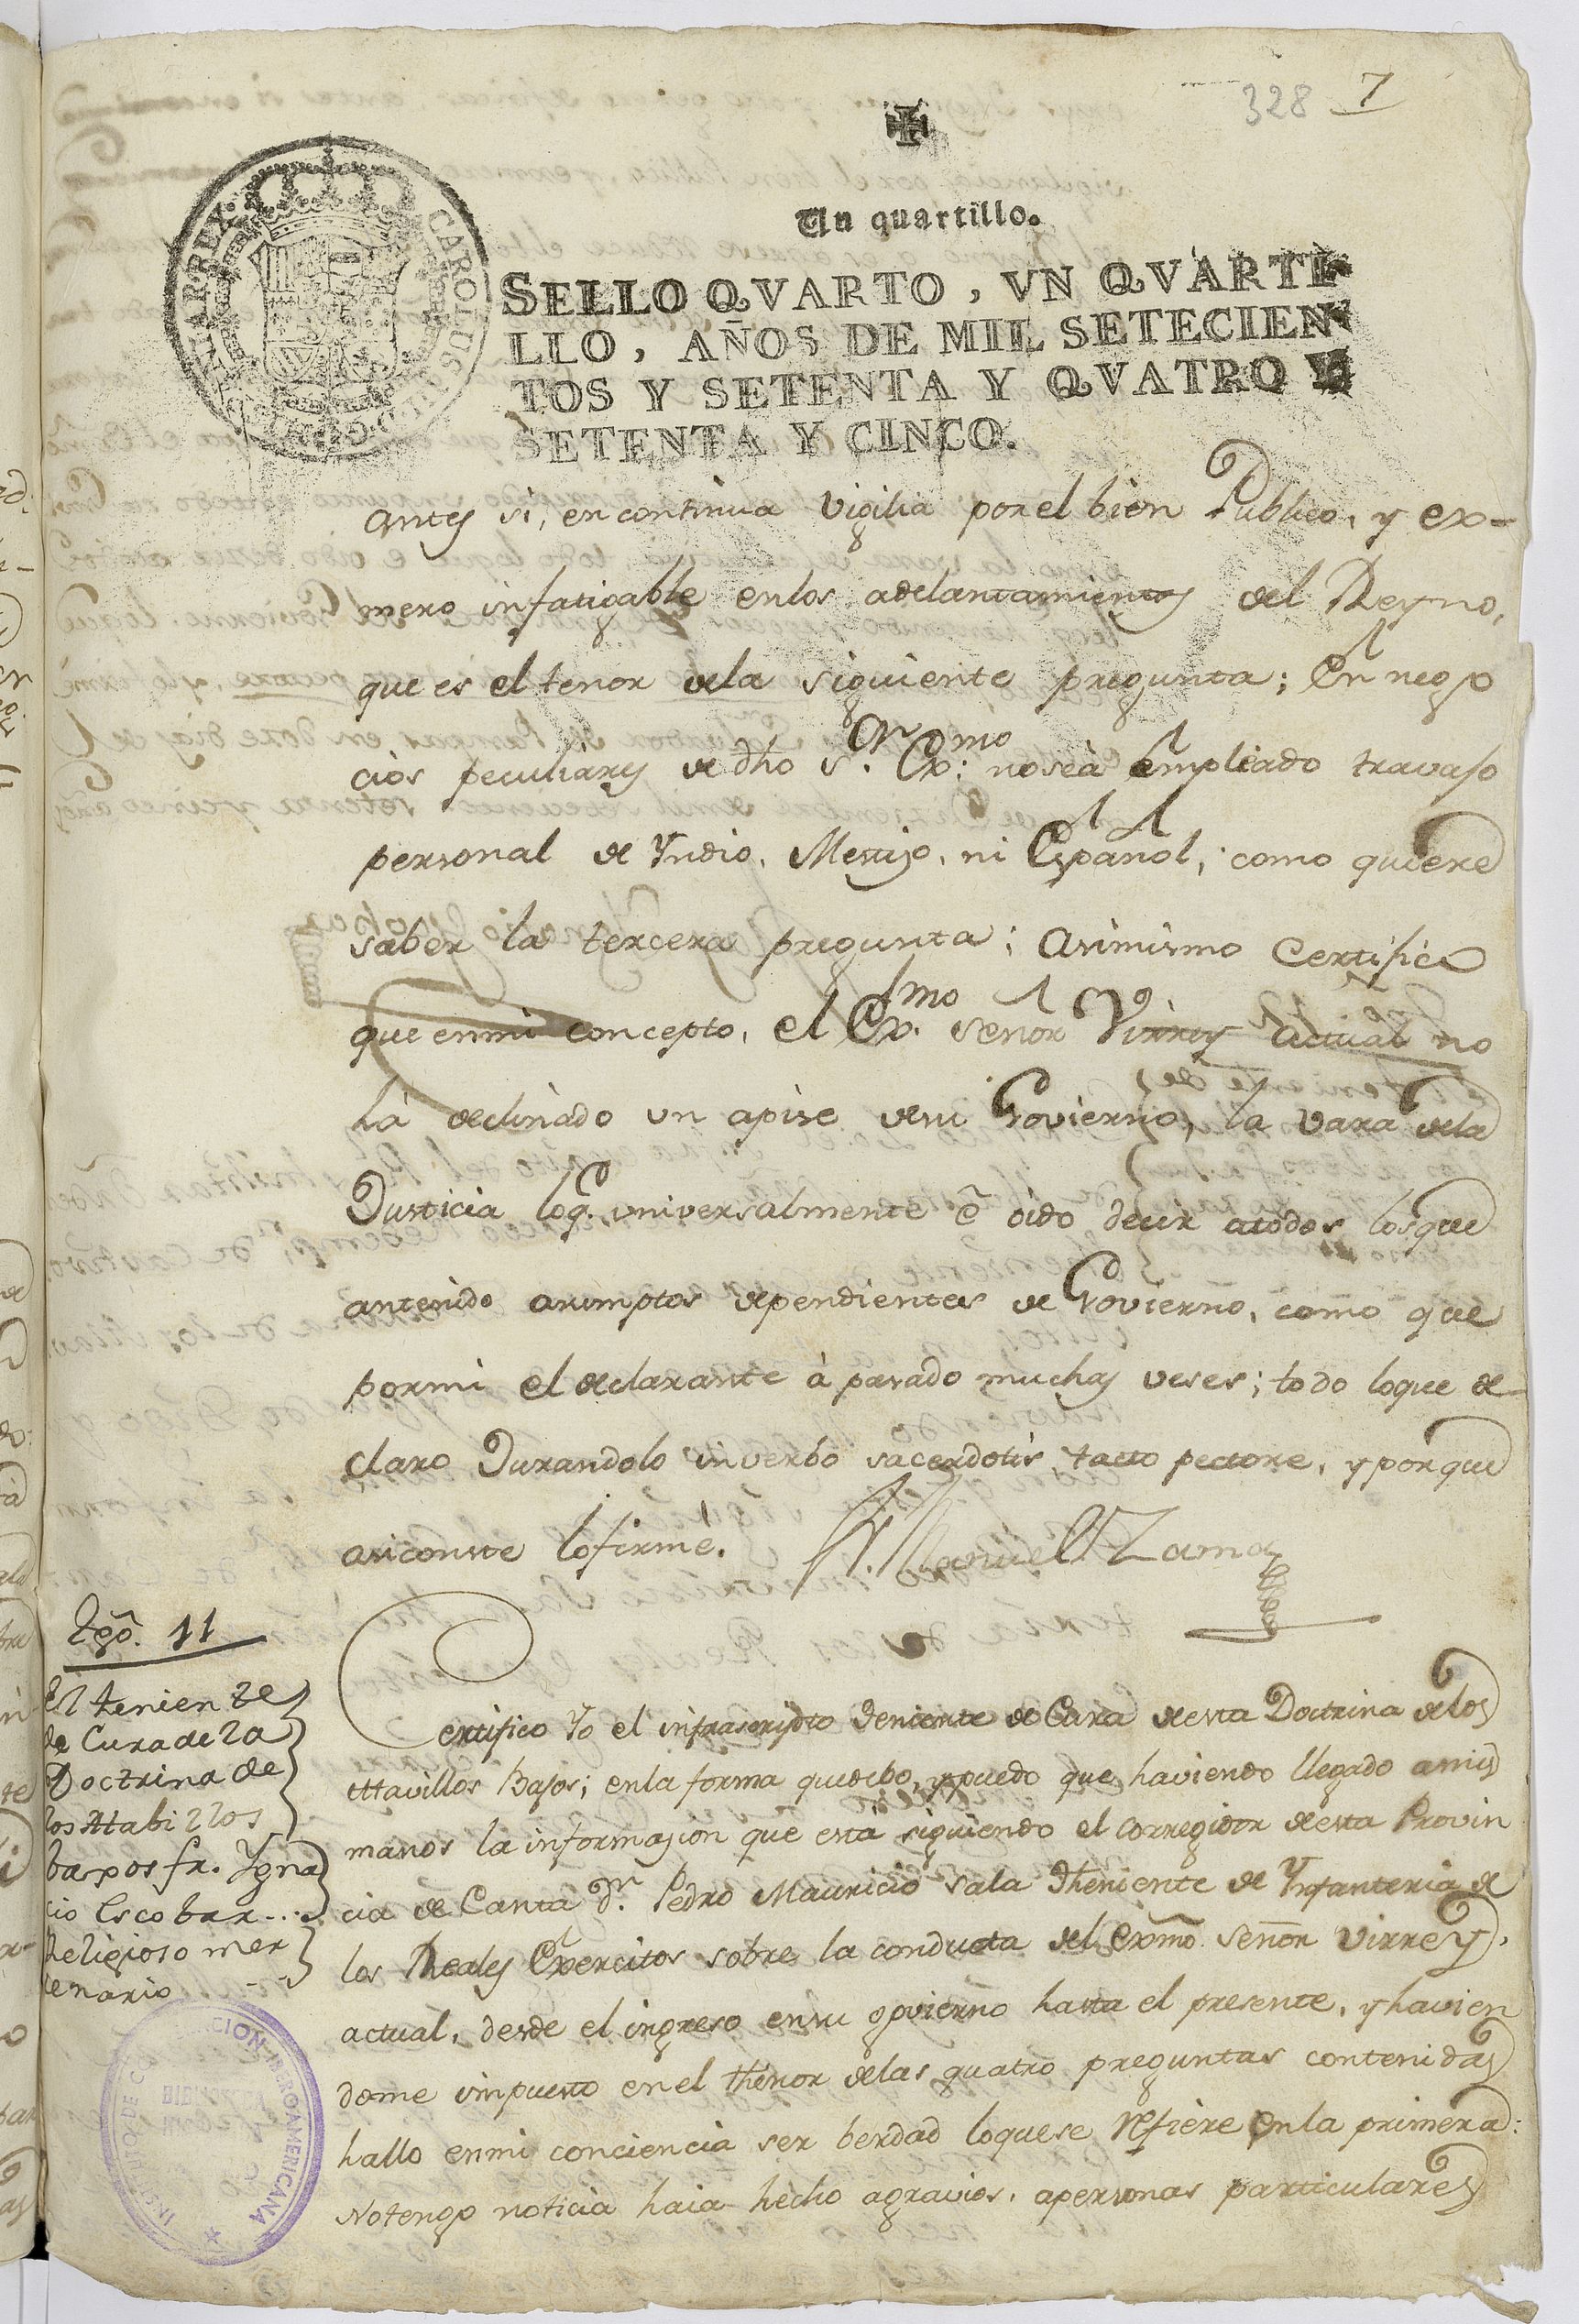 328 7
Un quartillo.
SELLO QVARTO, VN QVARTI
LLO, AÑOS DE MIL SETECIEN
TOS Y SETENTA Y QVATRO Y
SETENTA Y CINCO.
CAROLUS
antes si, en continua vigilia por el bien Publico, y ex=
mero infatigable enlos adelantamientos del Reyno,
que es el tenor dela siguiente pregunta; En nego
cios peculiares de dho S.ᵒʳ Ex.ᵐᵒ no seà empleado travajo
personal de Yndio, Mestizo, ni Español, como quiere
saber la tercera pregunta; asimismo Certifico
que enmi concepto, el Ex.ᵐᵒ señor Virrey actual no
hà declinado un apise desu Govierno, la vara dela
Justicia loq.ᵉ universalmente è oido decir atodos losque
antenido asumptos dependientes de Govierno, como que
pormi el declarante à pasado muchas veses; todo loque de
claro Jurandolo inverbo sacerdotis tacto pectore, y porque
asiconste lofirmé. Fr. Manuel Zama
Tgo. 11
El teniente
de Cura de la
Doctrina de
los Atabillos
baxos fr. Ygna
cio Escobar ...
Religioso mer
cenario - -
Certifico Yo el infrascripto Teniente de Cura desta Doctrina delos
Atavillos Bajos; enla forma quedebo, y puedo que haviendo llegado amis
manos la informasion que està siguiendo el Corregidor desta Provin
cia de Canta D.ⁿ Pedro Mauricio Sala Theniente de Ynfanteria de
los Reales Exercitos sobre la conducta del exmõ. Señor Virrey,
actual, desde el ingreso ensu govierno hasta el presente, y havien
dome impuesto en el thenor delas quatro preguntas contenidas
hallo enmi conciencia ser berdad loquese refiere enla primera:
Notengo noticia haia hecho agravios, apersonas particulares
IBEROAMERICANA